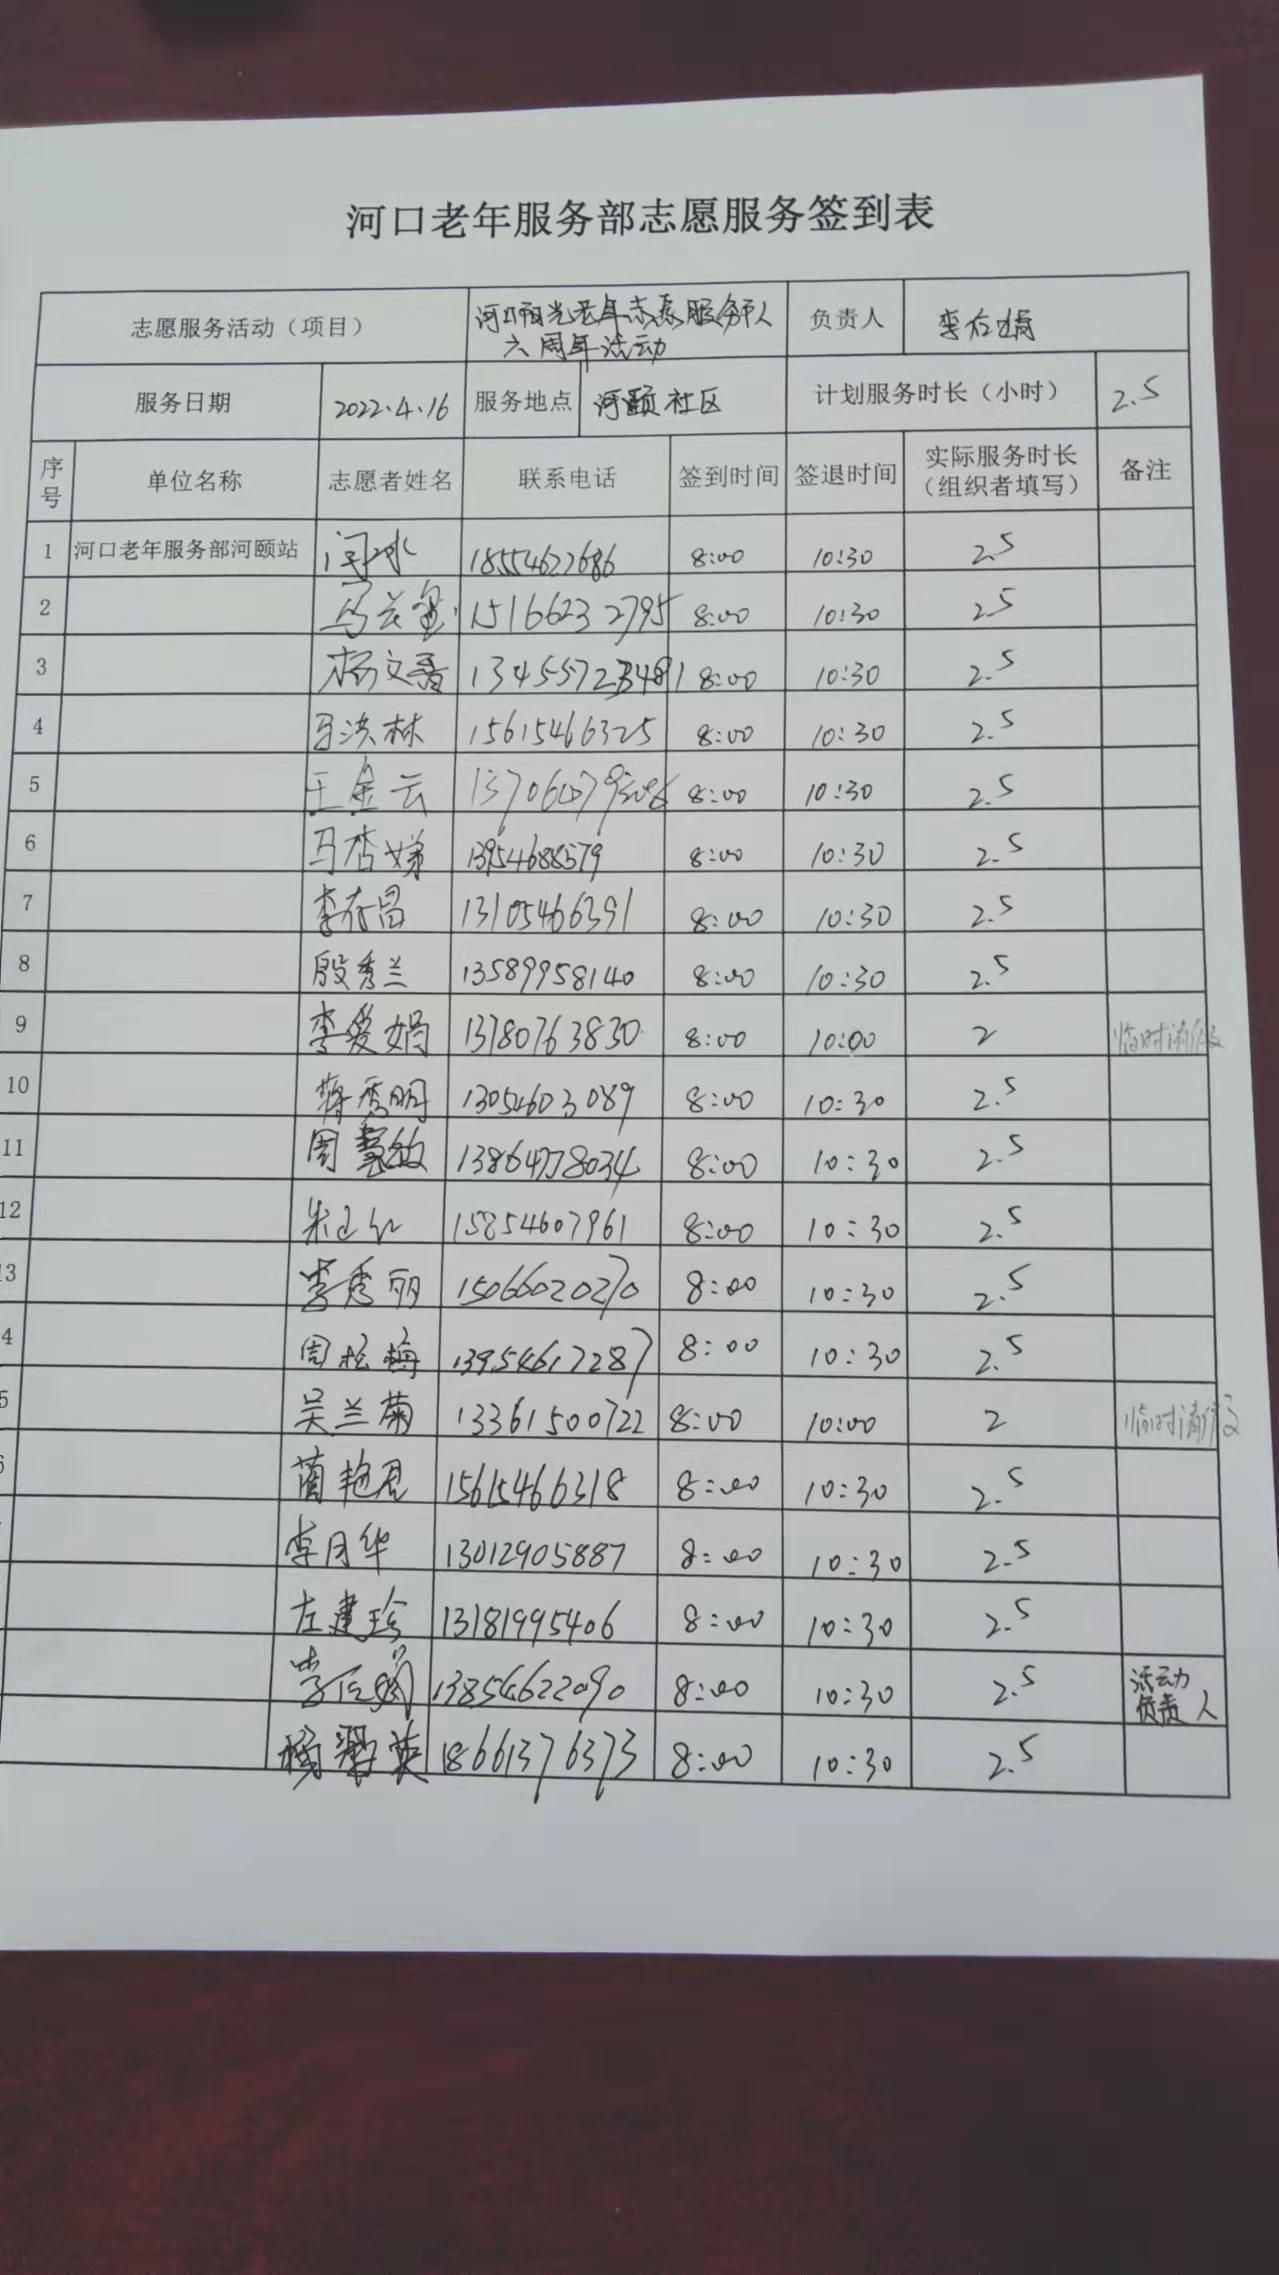 河口老年服务部志愿服务签到表
志愿服务活动（项目） 河口阳光老年志愿服务 负责人 李
六周年活动
服务日期 2022.4.16 服务地点 河颐社区 计划服务时长（小时） 2.5
序号 单位名称 志愿者姓名 联系电话 签到时间 签退时间 实际服务时长（组织者填写） 备注
1 河口老年服务部河颐站 18554622686 8:00 10:30 2.5
2 15166232795 8:00 10:30 2.5
3 杨文 8:00 10:30 2.5
4 马洪林 15615466325 8:00 10:30 2.5
5 王金云 8:00 10:30 2.5
6 马杏娣 13954688579 8:00 10:30 2.5
7 李存昌 13105466391 8:00 10:30 2.5
8 殷秀兰 13589958140 8:00 10:30 2.5
9 李爱娟 13780763830 8:00 10:00 2 临时请假
10 蒋秀明 13054603089 8:00 10:30 2.5
11 周慧敏 13864778034 8:00 10:30 2.5
12 朱 15854607961 8:00 10:30 2.5
13 李秀丽 15066020270 8:00 10:30 2.5
4 周松梅 13954617287 8:00 10:30 2.5
5 吴兰菊 13361500722 8:00 10:00 2 临时请假
艳君 15615466318 8:00 10:30 2.5
李月华 13012905887 8:00 10:30 2.5
左建珍 13181995406 8:00 10:30 2.5
李 13854622090 8:00 10:30 2.5 活动负责人
杨翠英 18661376373 8:00 10:30 2.5